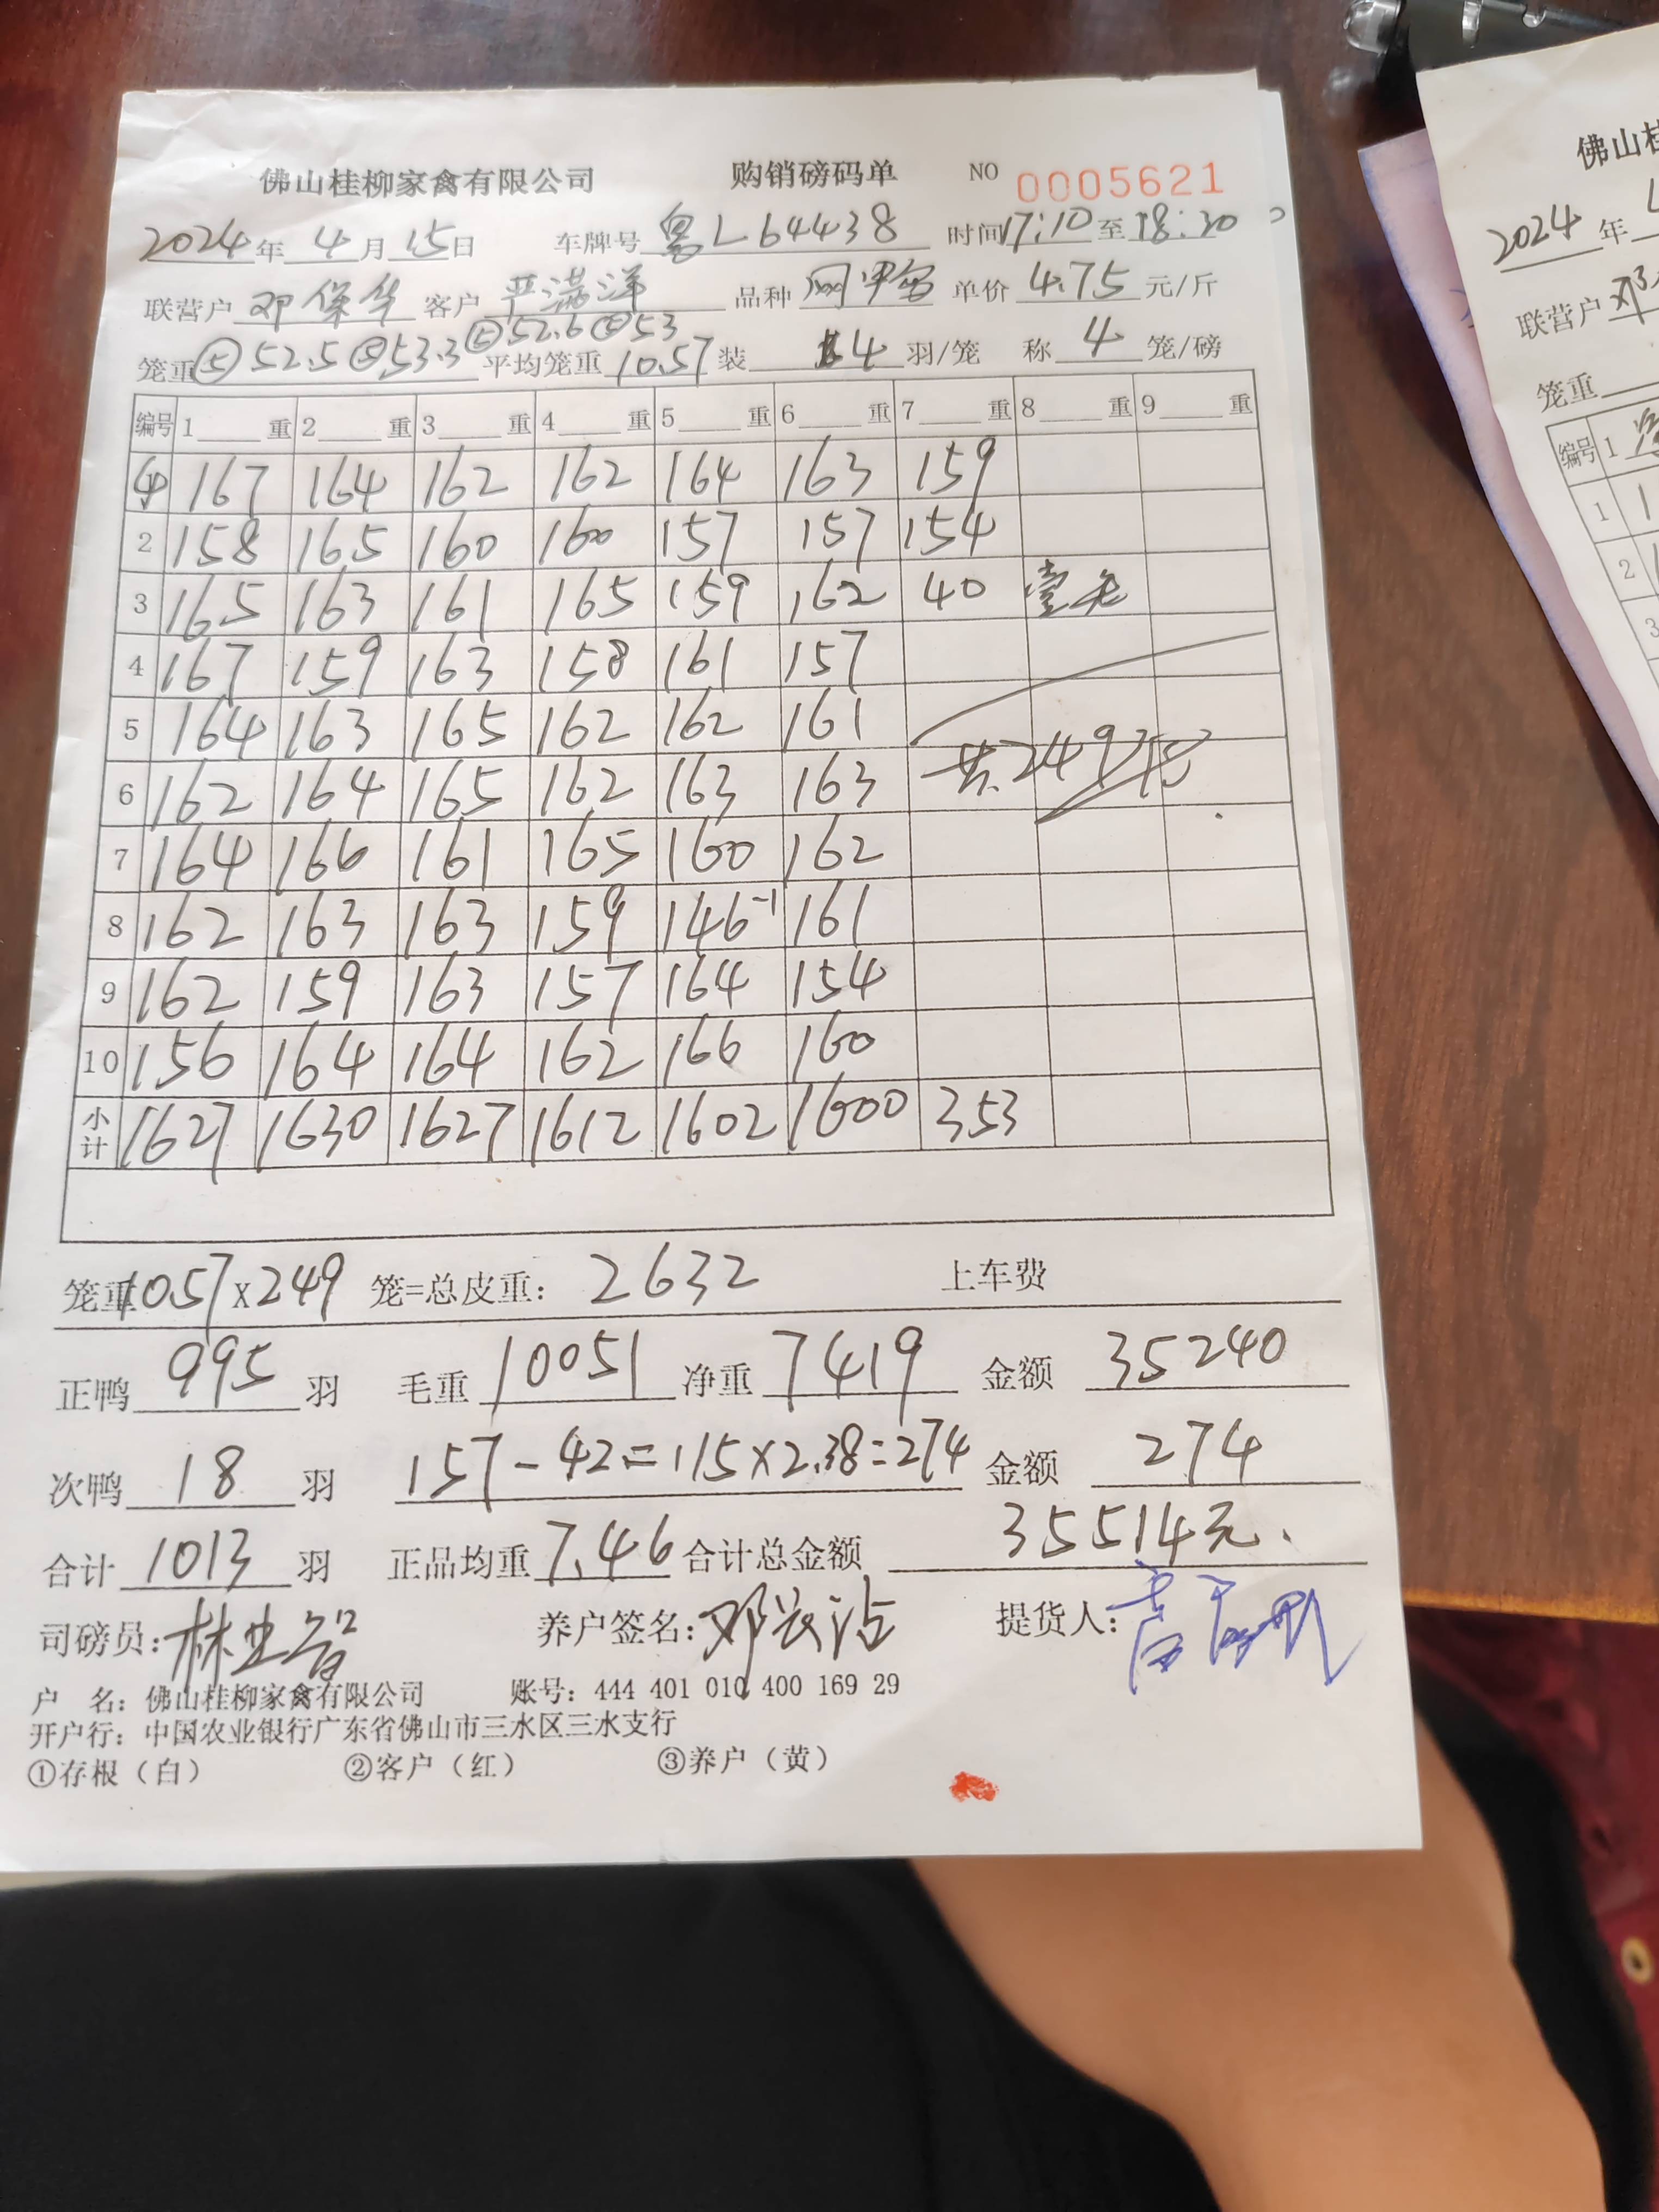 佛山桂柳家禽有限公司 购销磅码单 NO 0005621
2024年4月15日 车牌号 粤L64438 时间17:10至18:20
联营户 邓保华 客户 严潇洋 品种 单价 4.75 元/斤
笼重⑤52.5⑤53.3⑤52.6⑤53 平均笼重 10.57 装 4 羽/笼 称 4 笼/磅
编号 1 重 2 重 3 重 4 重 5 重 6 重 7 重 8 重 9 重
167 164 162 162 164 163 159
2 158 165 160 160 157 157 154
3 165 163 161 165 159 162 40 壹笼
4 167 159 163 158 161 157
5 164 163 165 162 162 161
6 162 164 165 162 163 163 共249笼
7 164 166 161 165 160 162
8 162 163 163 159 146-1 161
9 162 159 163 157 164 154
10 156 164 164 162 166 160
小计 1627 1630 1627 1612 1602 1600 353
笼重10.57 X 249 笼=总皮重: 2632 上车费
正鸭 995 羽 毛重 10051 净重 7419 金额 35240
次鸭 18 羽 157-42=115×2.38=274 金额 274
合计 1013 羽 正品均重 7.46 合计总金额 35514元.
司磅员: 养户签名: 提货人:
户 名: 佛山桂柳家禽有限公司 账号: 444 401 010 400 169 29
开户行: 中国农业银行广东省佛山市三水区三水支行
①存根(白) ②客户(红) ③养户(黄)
佛山桂
2024年
联营户
笼重
编号 1
1
2
3